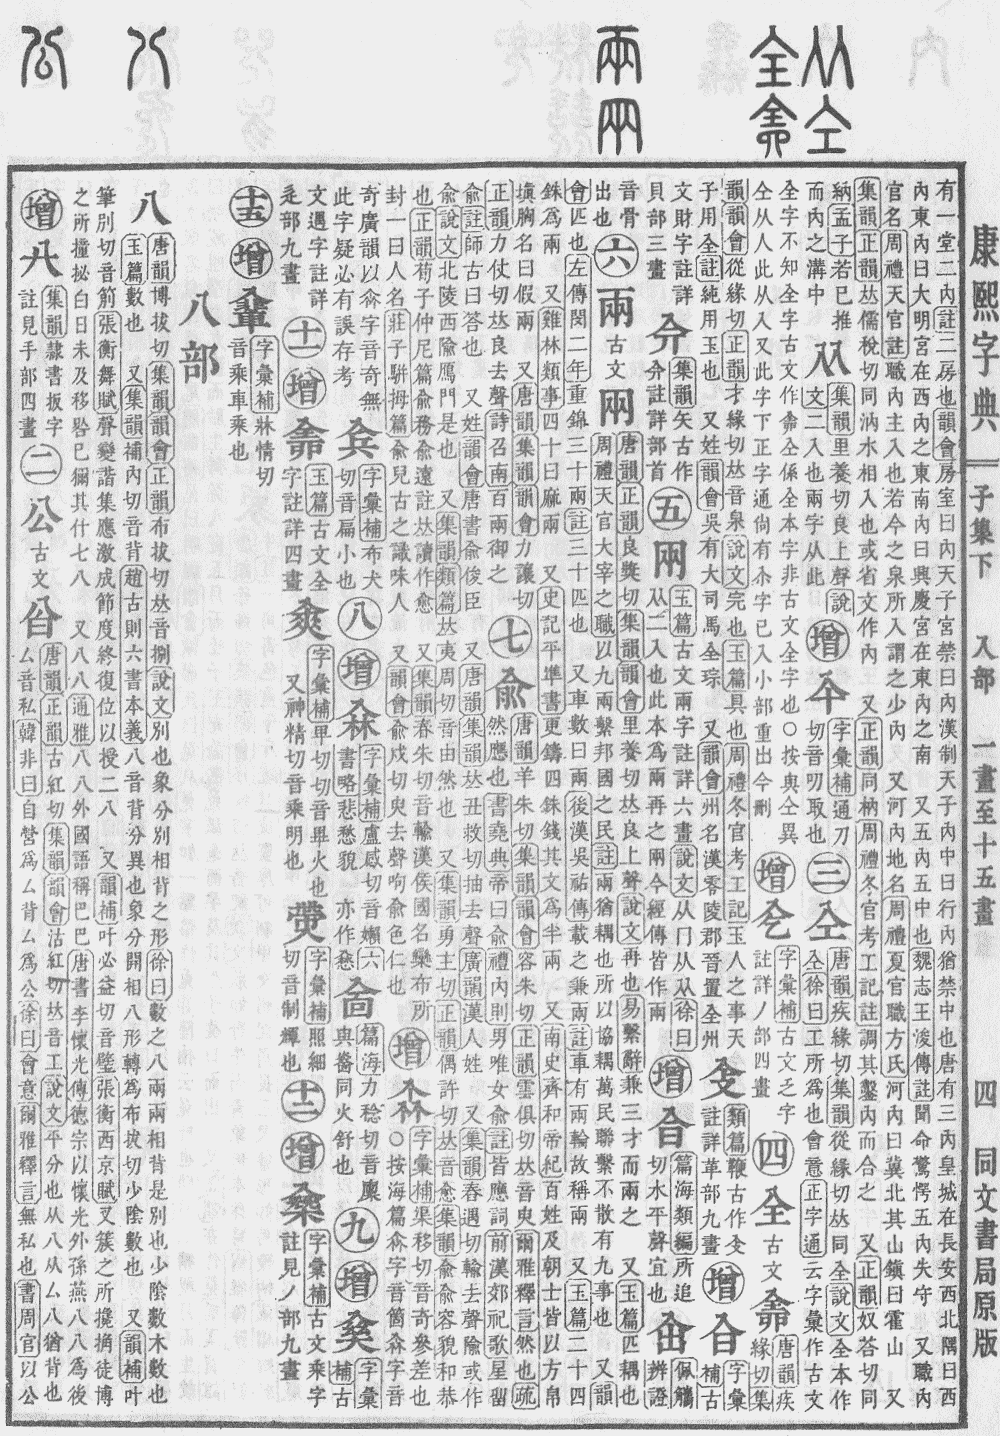 康熙字典 子集下 入部 一畫至十五畫 四 同文書局原版
有一堂二內註二房也韻會房室曰內天子宮禁曰內漢制天子內中曰行內猶禁中也唐有三內皇城在長安西北隅曰西
內東內曰大明宮在西內之東南內曰興慶宮在東內之南 又五內五中也魏志王浚傳註聞命驚愕五內失守 又職內
官名周禮天官註職內主入也若今之泉所入謂之少內 又河內地名周禮夏官職方氏河內曰冀北其山鎭曰霍山 又
集韻正韻𠀤儒稅切同汭水相入也或省文作內 又正韻同枘周禮冬官考工記註調其鑿內而合之 又正韻奴荅切同
納孟子若已推
而內之溝中
从
集韻里養切良上聲說
文二入也兩字从此
增
字彙補通刀
切音叨取也
三
仝
唐韻疾緣切集韻從緣切𠀤同全說文全本作
仝徐曰工所爲也會意正字通云字彙作古文
全字不知全字古文作𠓴仝係全本字非古文全字也○按與仝異
仝从人此从入又此字下正字通尙有尒字已入小部重出今刪
增
字彙補古文乏字
註詳丿部四畫
四
全
古文𠓴
唐韻疾
緣切集
韻韻會從緣切正韻才緣切𠀤音泉說文完也玉篇具也周禮冬官考工記玉人之事天
子用全註純用玉也 又姓韻會吳有大司馬全琮 又韻會州名漢零陵郡晉置全州
類篇鞭古作
註詳革部九畫
增
字彙
補古
文財字註詳
貝部三畫
集韻矢古作
註詳部首
五
㒳
玉篇古文兩字註詳六畫說文从冂从从徐曰
从二入也此本爲㒳再之㒳今經傳皆作兩
增
篇海類編所追
切水平聲宜也
佩觿
辨證
音骨
出也
六
兩
古文㒳
唐韻正韻良獎切集韻韻會里養切𠀤良上聲說文再也易繫辭兼三才而兩之 又玉篇匹耦也
周禮天官大宰之職以九兩繫邦國之民註兩猶耦也所以協耦萬民聯繫不散有九事也 又韻
會匹也左傳閔二年重錦三十兩註三十匹也 又車數曰兩後漢吳祐傳載之兼兩註車有兩輪故稱兩 又玉篇二十四
銖爲兩 又雞林類事四十曰麻兩 又史記平準書更鑄四銖錢其文爲半兩 又南史齊和帝紀百姓及朝士皆以方帛
塡胸名曰假兩 又唐韻集韻韻會力讓切
正韻力仗切𠀤良去聲詩召南百兩御之
七
兪
唐韻羊朱切集韻韻會容朱切正韻雲俱切𠀤音臾爾雅釋言然也疏
然應也書堯典帝曰兪禮內則男唯女兪註皆應詞前漢郊祀歌星畱
兪註師古曰荅也 又姓韻會唐書兪俊臣 又唐韻集韻𠀤丑救切抽去聲廣韻漢人姓 又集韻舂遇切輸去聲隃或作
兪說文北陵西隃鴈門是也 又集韻類篇𠀤夷周切音由然也 又集韻勇主切正韻偶許切𠀤音愈集韻兪兪容貌和恭
也正韻荀子仲尼篇兪務兪遠註𠀤讀作愈 又集韻春朱切音輸漢侯國名欒布所
封一曰人名莊子騈拇篇兪兒古之識味人 又韻會兪戍切臾去聲呴兪色仁也
增
字彙補渠移切音奇參差也
○按海篇 字音箇 字音
奇廣韻以 字音奇無
此字疑必有誤存考
字彙補布犬
切音扁小也
八
增
字彙補盧感切音嬾六
書略悲愁貌 亦作
篇海力稔切音廩
與㐭同火舒也
九
增
字彙
補古
文遇字註詳
辵部九畫
十一
增
玉篇古文全
字註詳四畫
字彙補𤰞切切音畢火也
又神精切音乘明也
字彙補照細
切音制燀也
十二
增
字彙補古文乘字
註見丿部九畫
十五
增
字彙補牀情切
音乘車乘也
八部
八
唐韻博拔切集韻韻會正韻布拔切𠀤音捌說文別也象分別相背之形徐曰數之八兩兩相背是別也少陰數木數也
玉篇數也 又集韻補內切音背趙古則六書本義八音背分異也象分開相八形轉爲布拔切少陰數也 又韻補叶
筆別切音䈤張衡舞賦聲變諧集應激成節度終復位以授二八 又韻補叶必益切音璧張衡西京賦叉簇之所攙捔徒博
之所撞㧙白日未及移晷已獮其什七八 又八八通雅八八外國語稱巴巴唐書李懷光傳德宗以懷光外孫燕八八爲後
增
集韻隷書扳字
註見手部四畫
二
公
古文㕣
唐韻正韻古紅切集韻韻會沽紅切𠀤音工說文平分也从八从厶八猶背也
厶音私韓非曰自營爲厶背厶爲公徐曰會意爾雅釋言無私也書周官以公